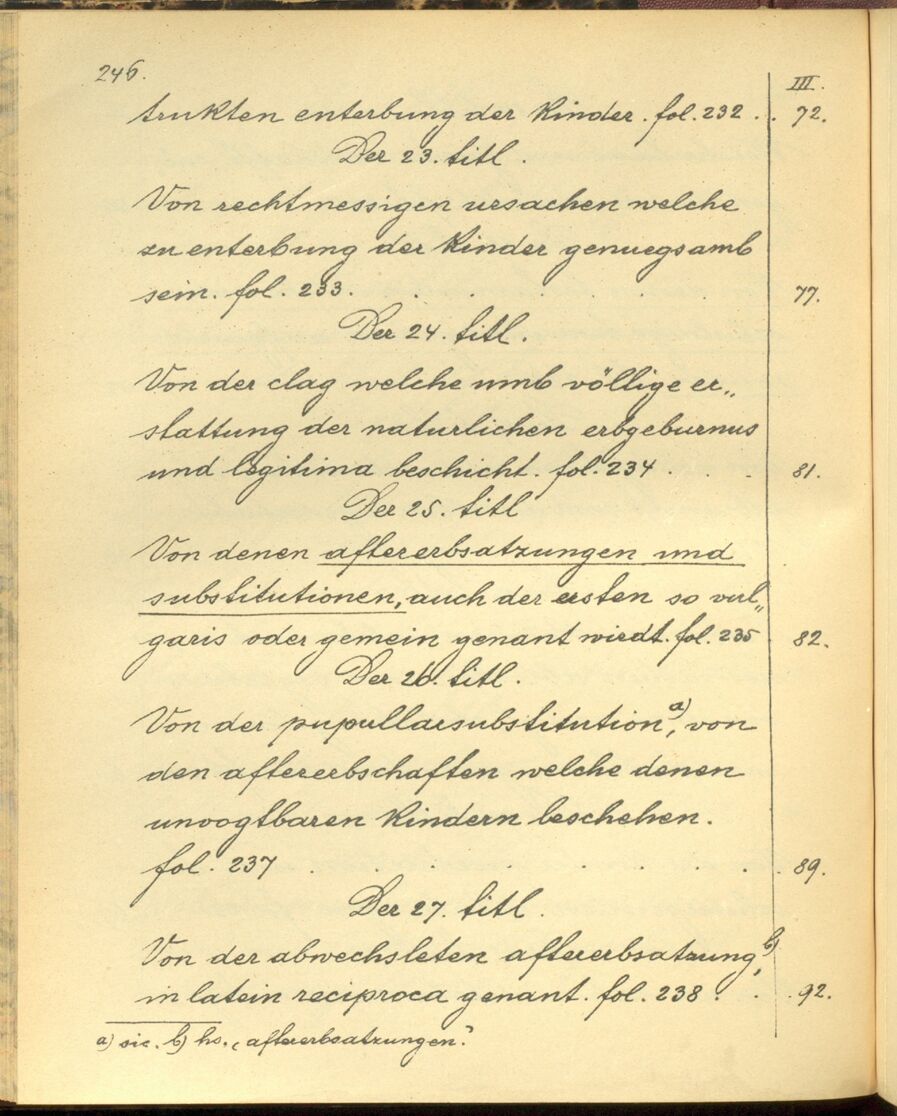 246.
III.
trukten enterbung der Kinder. fol. 232 . . 72.
Der 23. titl.
Von rechtmessigen ursachen welche
zu enterbung der Kinder genuegsamb
sein. fol. 233. . . . . . . 77.
Der 24. titl.
Von der clag welche umb völlige er„
stattung der naturlichen erbgeburnus
und legitima beschicht. fol. 234 . . . 81.
Der 25. titl
Von denen aftererbsatzungen und
substitutionen, auch der ersten so vul„
garis oder gemein genant wirdt. fol. 235 . 82.
Der 26. titl.
Von der pupullarsubstitution a), von
den aftererbschaften welche denen
unvogtbaren Kindern beschehen.
fol. 237 . . . . . . . . 89.
Der 27. titl.
Von der abwechsleten aftererbsatzung, b)
in latein reciproca genant. fol. 238 . . . 92.
a) sic. b) hs. „aftererbsatzungen".